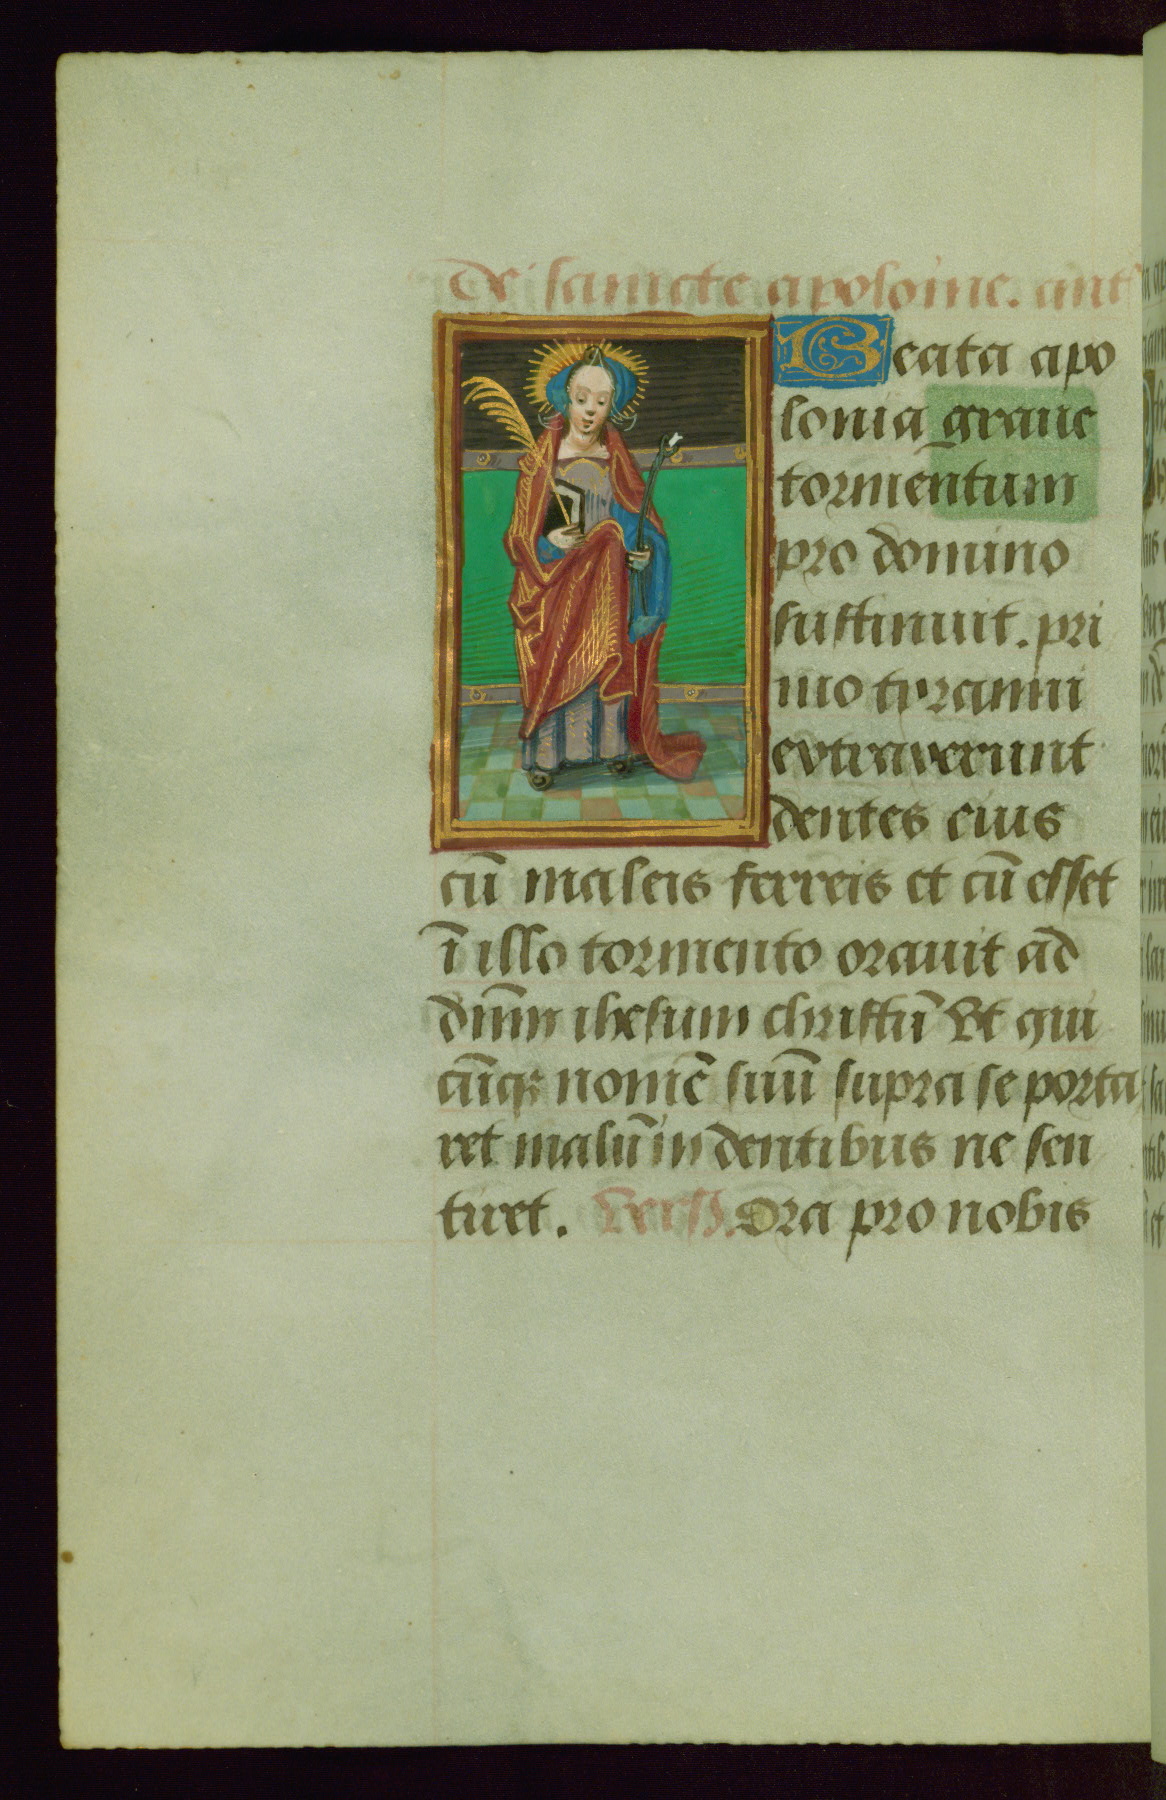 De sancte apolonie. ant
Beata apo
lonia graue
tormentum
pro domino
sustinuit. pri
mo tiranni
extraxerunt
dentes eius
cū maleis ferreis et cū esset
ī illo tormento orauit ad
dn̄m ihesum christū Et qui
cūqꝫ nomē suū supra se porta
ret malū in dentibus ne sen
tiret. Vers. Ora pro nobis